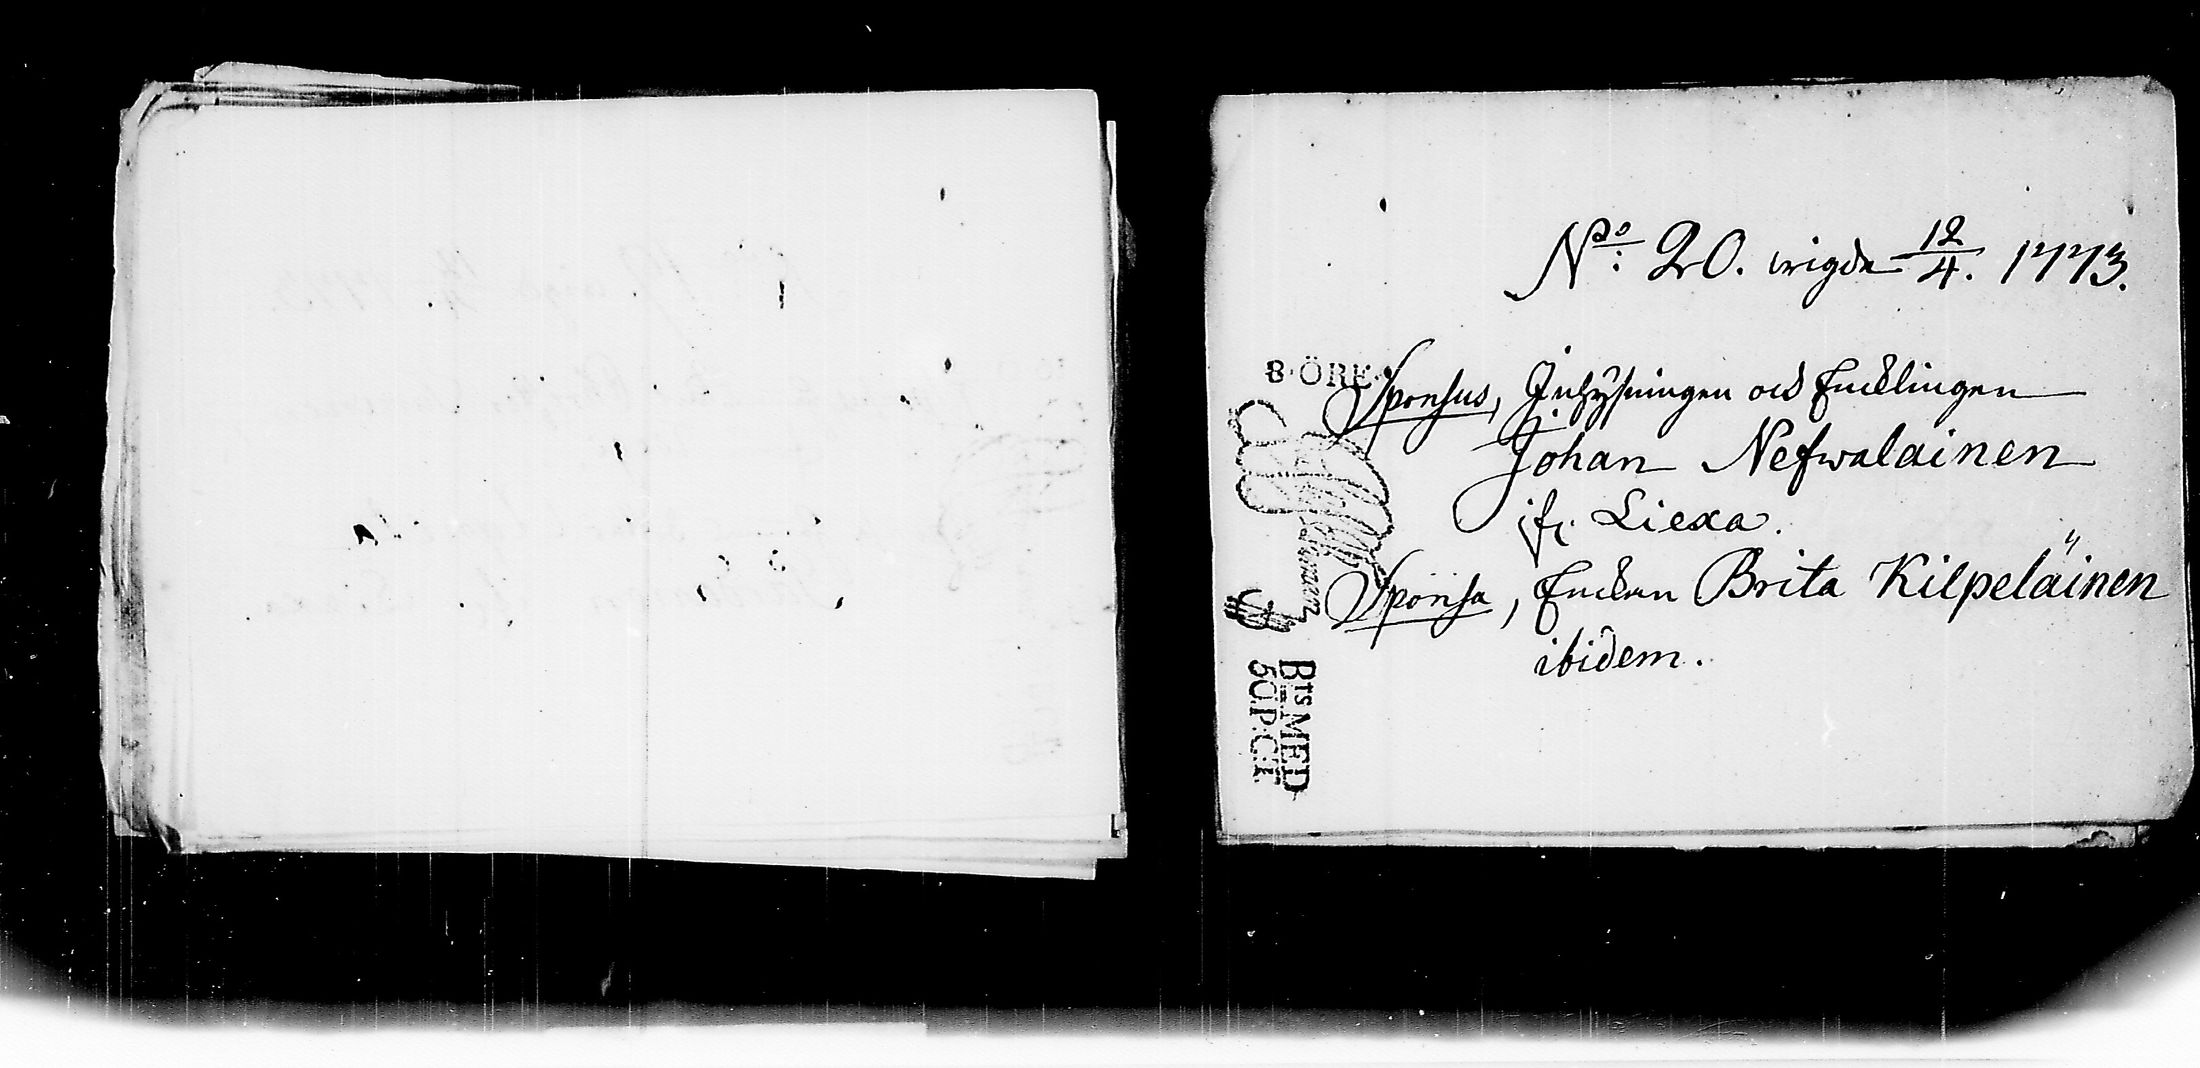 No: 20. wigde 12/4. 1773.
8 ÖRE
Sponsus, Inhysningen och Encklingen
Johan Nefwalainen
ifr. Liexa.
Sponsa, Enckan Brita Kilpeläinen
ibidem.
Bts MED
50. P: C:T.